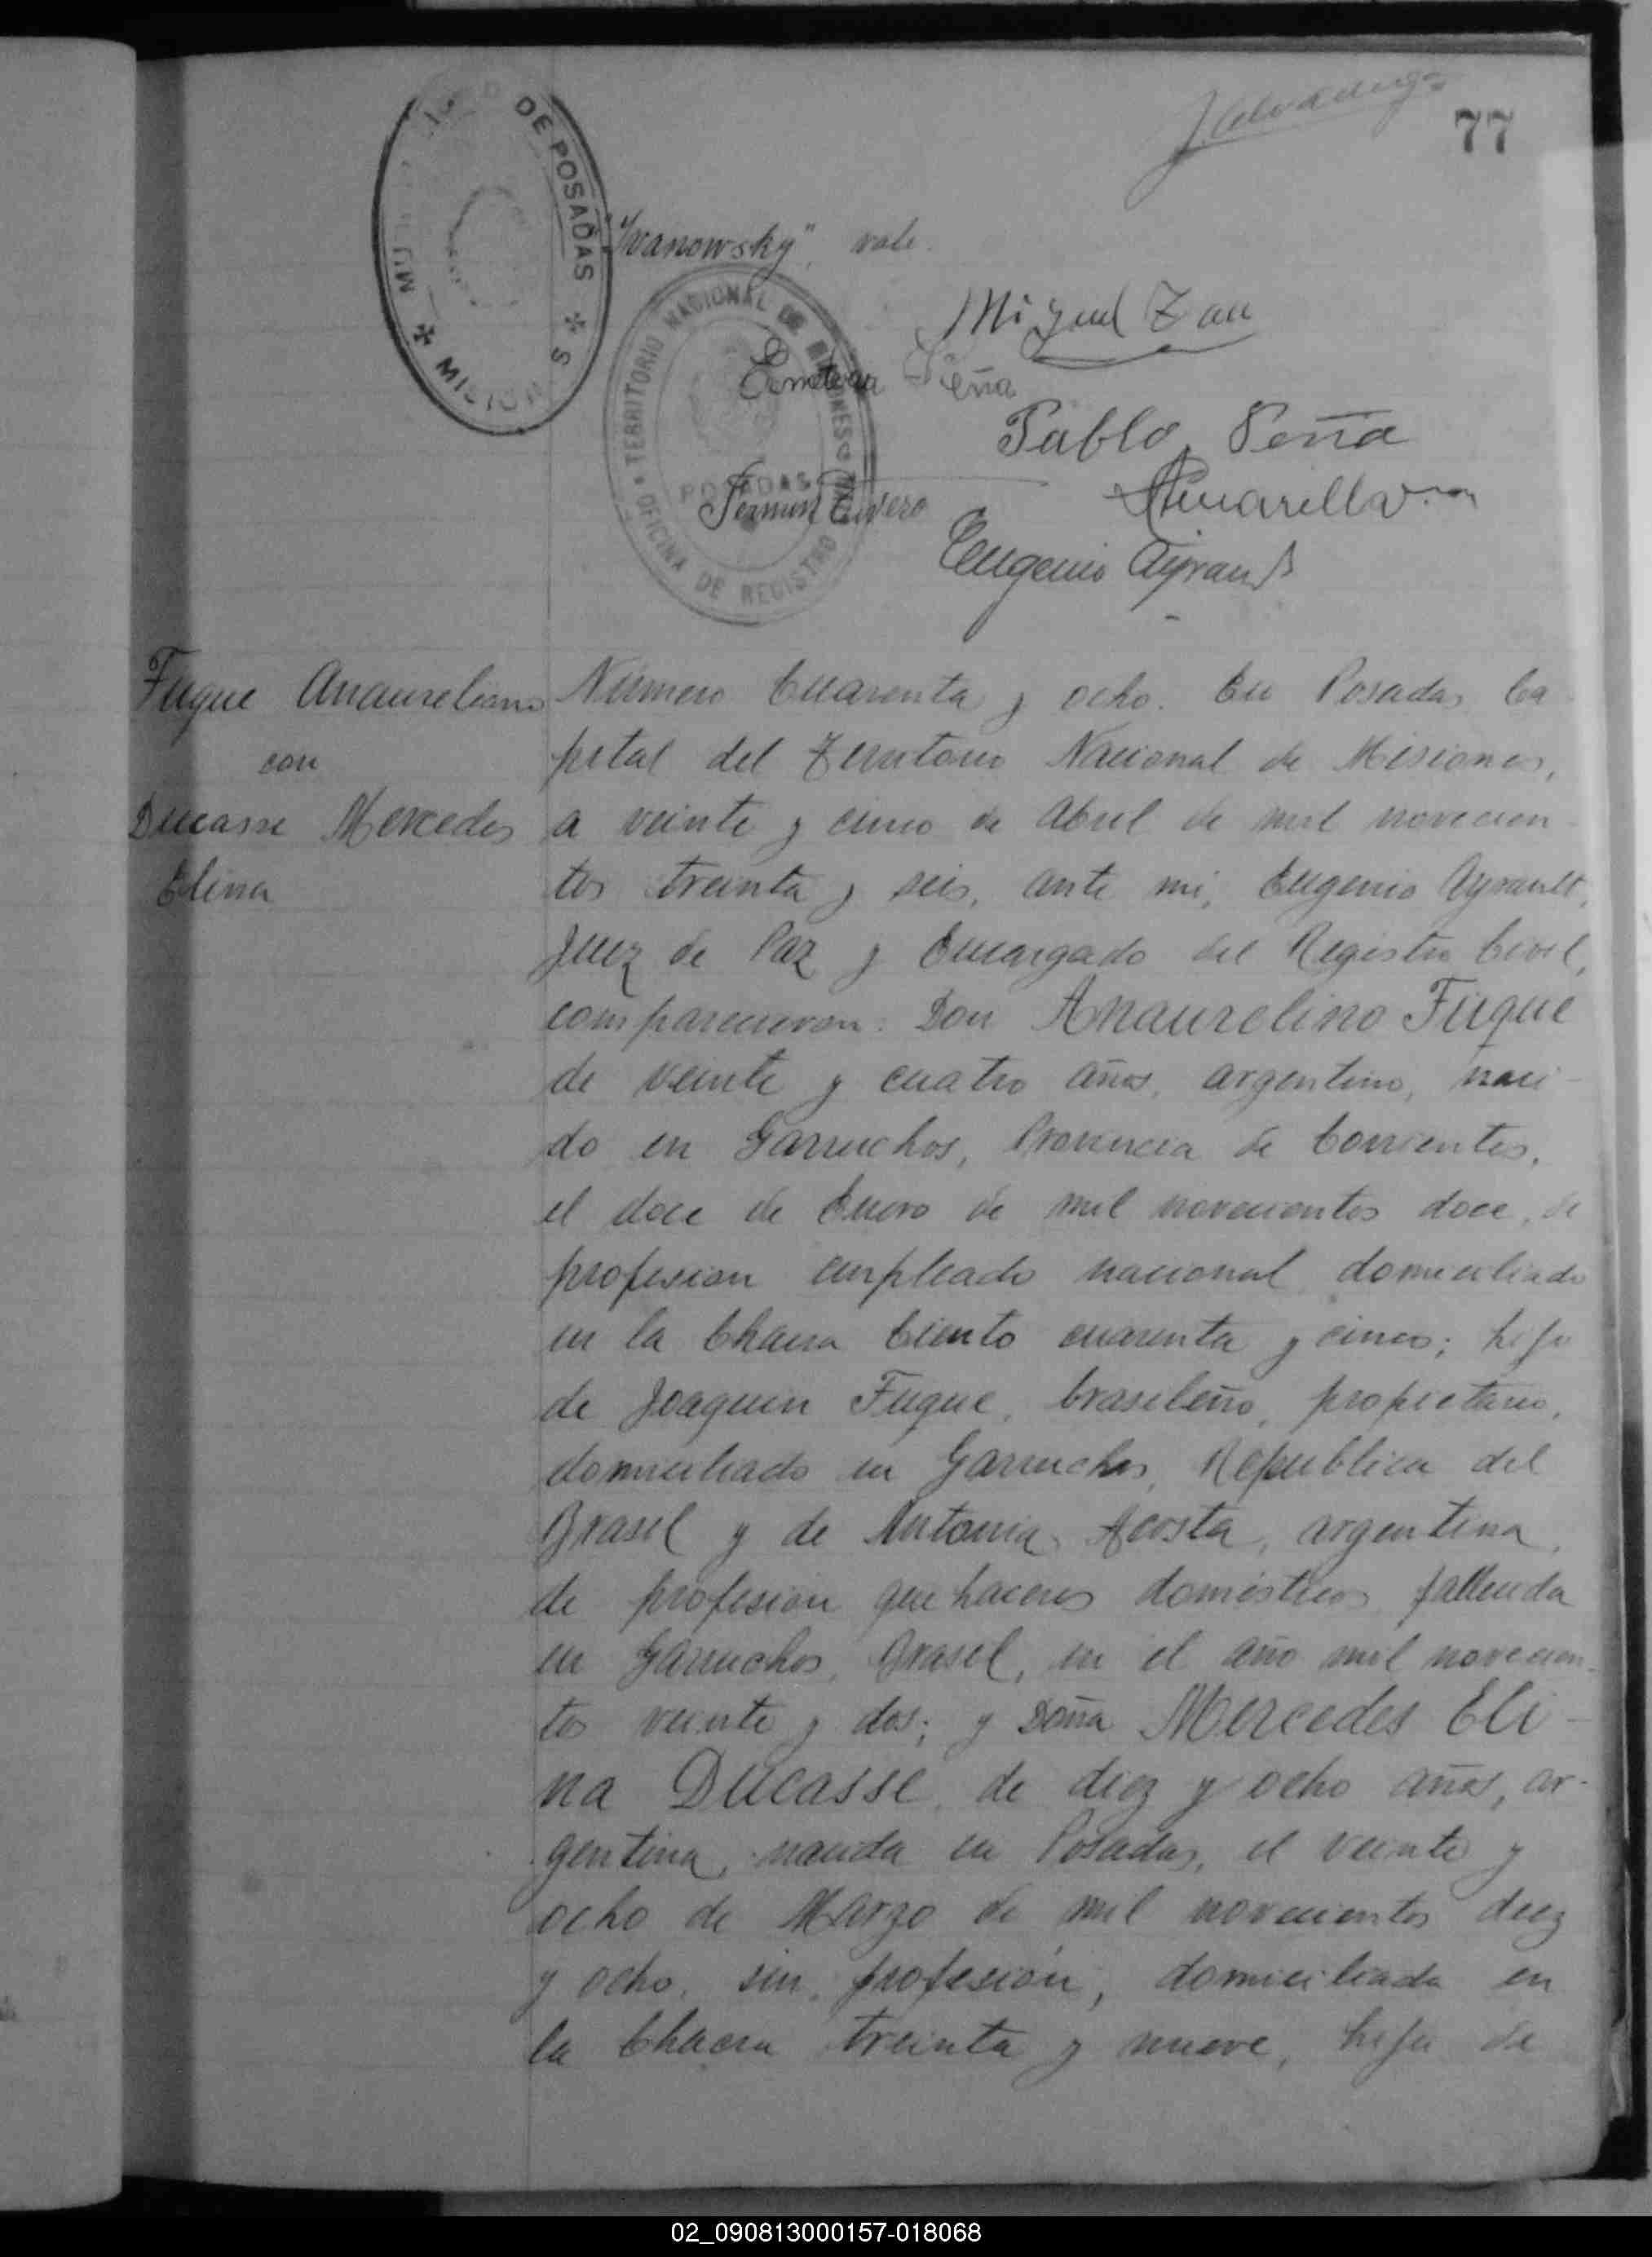 77
DE POSADAS
MISION
"Ivanowsky", vale.
TERRITORIO NACIONAL DE MISIONES
OFICINA DE REGISTRO
POSADAS
Miguel Zan
Peña
Pablo Peña
Eugenio Ayrault
Fuque Anaureliano
con
Ducasse Mercedes
Elina
Número Cuarenta y ocho. En Posadas Ca
pital del Territorio Nacional de Misiones,
a veinte y cinco de Abril de mil novecien
tos treinta y seis, ante mi, Eugenio Ayrault,
Juez de Paz y Encargado del Registro Civil,
comparecieron: Don Anaurelino Fuque
de veinte y cuatro años, argentino, naci-
do en Garruchos, Provincia de Corrientes,
el doce de Enero de mil novecientos doce, de
profesion empleado nacional domiciliado
en la Chacra Ciento cuarenta y cinco; hijo
de Joaquin Fuque, brasileño, propietario,
domiciliado en Garruchos, Republica del
Brasil y de Antonia Acosta, argentina,
de profesion quehaceres domésticos fallecida
en Garruchos, Brasil, en el año mil novecien-
tos veinte y dos; y Doña Mercedes Eli-
na Ducasse, de diez y ocho años, ar-
gentina, nacida en Posadas, el veinte y
ocho de Marzo de mil novecientos diez
y ocho, sin profesión, domiciliada en
la Chacra treinta y nueve, hija de
02_090813000157-018068